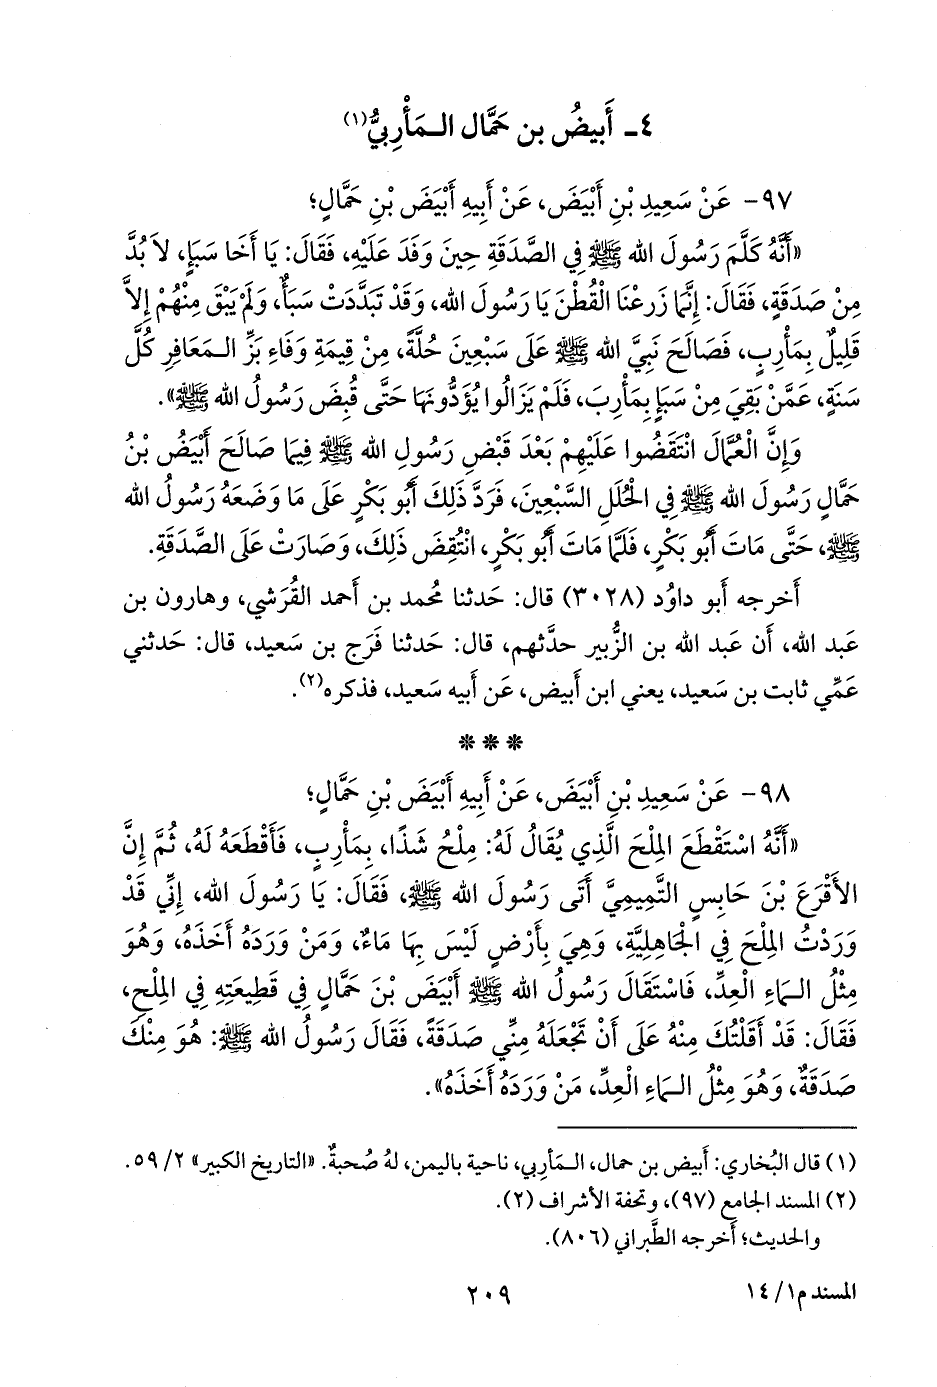 ٤ـ أَبيضُ بن حَمَّال الـمَأْرِبيُّ(١)
٩٧- عَنْ سَعِيدِ بْنِ أَبْيَضَ، عَنْ أَبِيهِ أَبْيَضَ بْنِ حَمَّالٍ؛
«أَنَّهُ كَلَّمَ رَسُولَ الله ﷺ فِي الصَّدَقَةِ حِينَ وَفَدَ عَلَيْهِ، فَقَالَ: يَا أَخَا سَبَإٍ، لاَ بُدَّ
مِنْ صَدَقَةٍ، فَقَالَ: إِنَّمَا زَرعْنَا الْقُطْنَ يَا رَسُولَ الله، وَقَدْ تَبَدَّدَتْ سَبَأٌ، وَلَمْ يَبْقَ مِنْهُمْ إِلاَّ
قَلِيلٌ بِمَأْرِبٍ، فَصَالَحَ نَبِيَّ الله ﷺ عَلَى سَبْعِينَ حُلَّةً، مِنْ قِيمَةِ وَفَاءِ بَزِّ الـمَعَافِرِ كُلَّ
سَنَةٍ، عَمَّنْ بَقِيَ مِنْ سَبَإٍ بِمَأْرِبَ، فَلَمْ يَزَالُوا يُؤَدُّونَهَا حَتَّى قُبِضَ رَسُولُ الله ﷺ».
وَإِنَّ الْعُمَّالَ انْتَقَضُوا عَلَيْهِمْ بَعْدَ قَبْضِ رَسُولِ الله ﷺ فِيمَا صَالَحَ أَبْيَضُ بْنُ
حَمَّالٍ رَسُولَ الله ﷺ فِي الْحُلَلِ السَّبْعِينَ، فَرَدَّ ذَلِكَ أَبُو بَكْرٍ عَلَى مَا وَضَعَهُ رَسُولُ الله
ﷺ، حَتَّى مَاتَ أَبُو بَكْرٍ، فَلَمَّا مَاتَ أَبُو بَكْرٍ، انْتُقِضَ ذَلِكَ، وَصَارَتْ عَلَى الصَّدَقَةِ.
أَخرجه أَبو داوُد (٣٠٢٨) قال: حَدثنا مُحمد بن أَحمد القُرَشي، وهارون بن
عَبد الله، أَن عَبد الله بن الزُّبير حدَّثهم، قال: حَدثنا فَرَج بن سَعيد، قال: حَدثني
عَمِّي ثابت بن سَعيد، يعني ابن أَبيض، عَن أَبيه سَعيد، فذكره(٢).
***
٩٨- عَنْ سَعِيدِ بْنِ أَبْيَضَ، عَنْ أَبِيهِ أَبْيَضَ بْنِ حَمَّالٍ؛
«أَنَّهُ اسْتَقْطَعَ المِلْحَ الَّذِي يُقَالُ لَهُ: مِلْحُ شَذَا، بِمَأْرِبٍ، فَأَقْطَعَهُ لَهُ، ثُمَّ إِنَّ
الأَقْرَعَ بْنَ حَابِسٍ التَّمِيمِيَّ أَتَى رَسُولَ الله ﷺ، فَقَالَ: يَا رَسُولَ الله، إِنِّي قَدْ
وَرَدْتُ المِلْحَ فِي الْجَاهِلِيَّةِ، وَهِيَ بِأَرْضٍ لَيْسَ بِهَا مَاءٌ، وَمَنْ وَرَدَهُ أَخَذَهُ، وَهُوَ
مِثْلُ الـمَاءِ الْعِدِّ، فَاسْتَقَالَ رَسُولُ الله ﷺ أَبْيَضَ بْنَ حَمَّالٍ فِي قَطِيعَتِهِ فِي المِلْحِ،
فَقَالَ: قَدْ أَقَلْتُكَ مِنْهُ عَلَى أَنْ تَجْعَلَهُ مِنِّي صَدَقَةً، فَقَالَ رَسُولُ الله ﷺ: هُوَ مِنْكَ
صَدَقَةٌ، وَهُوَ مِثْلُ الـمَاءِ الْعِدِّ، مَنْ وَرَدَهُ أَخَذَهُ».
(١) قال البُخاري: أَبيض بن حمال، الـمَأرِبي، ناحية باليمن، لهُ صُحبةٌ. «التاريخ الكبير» ٢/ ٥٩.
(٢) المسند الجامع (٩٧)، وتحفة الأشراف (٢).
والحديث؛ أَخرجه الطَّبراني (٨٠٦).
المسند م١/ ١٤
٢٠٩